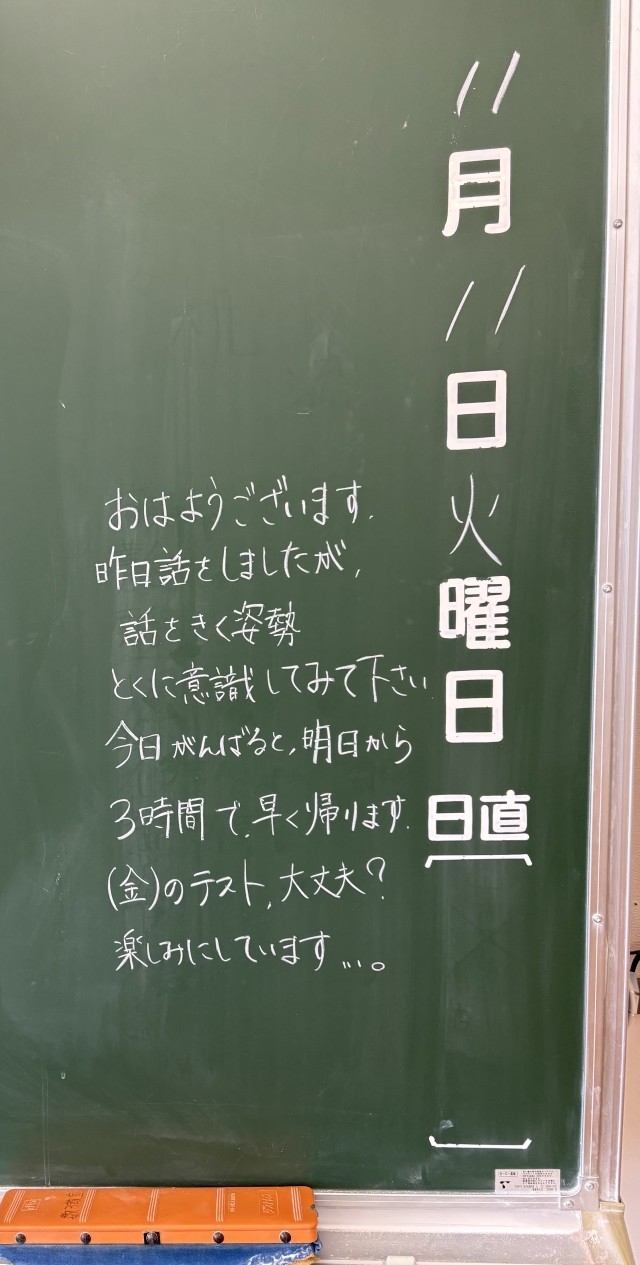 11月11日火曜日
日直
おはようございます.
昨日話をしましたが,
話をきく姿勢
とくに意識してみて下さい.
今日がんばると,明日から
3時間で,早く帰ります.
(金)のテスト,大丈夫?
楽しみにしています...。